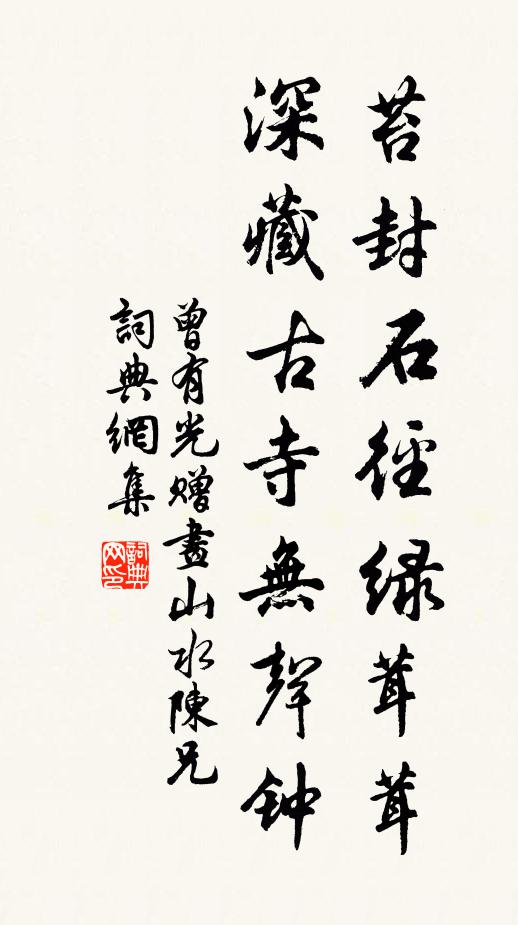 苔封石徑緑茸茸
深藏古寺無聲钟
曾有光贈畫山水陳兄
詞典網集
詞典网印